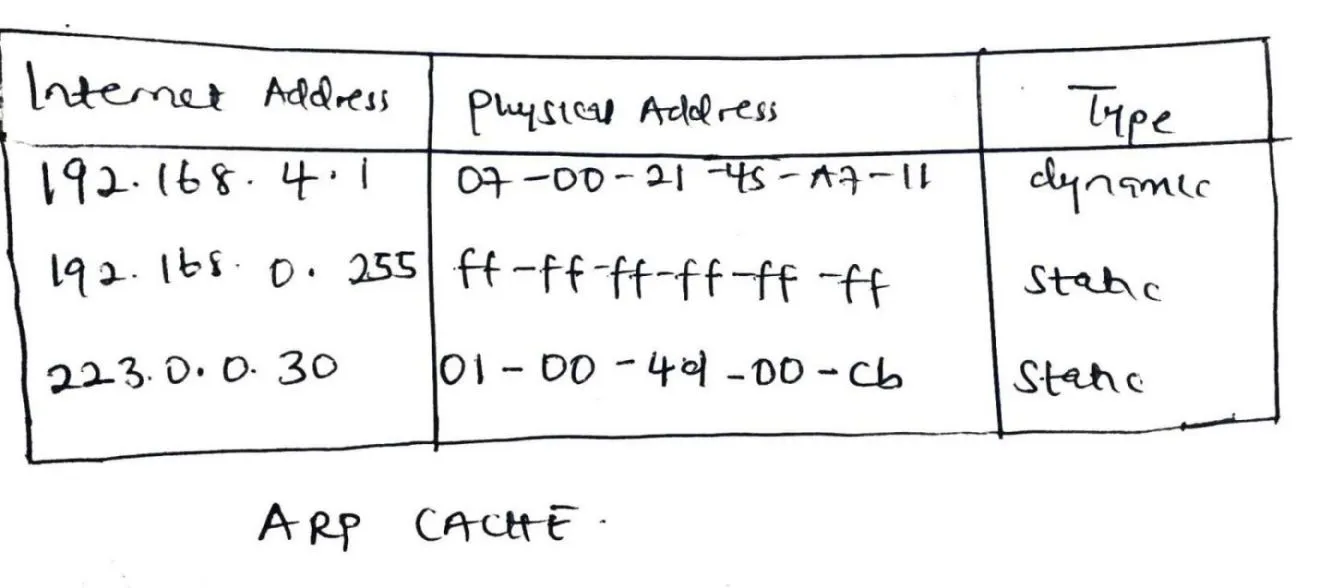 Internet Address Physical Address Type
192.168.4.1 07-00-21-45-A7-11 dynamic
192.168.0.255 ff-ff-ff-ff-ff-ff static
223.0.0.30 01-00-4d-00-cb static
ARP CACHE.